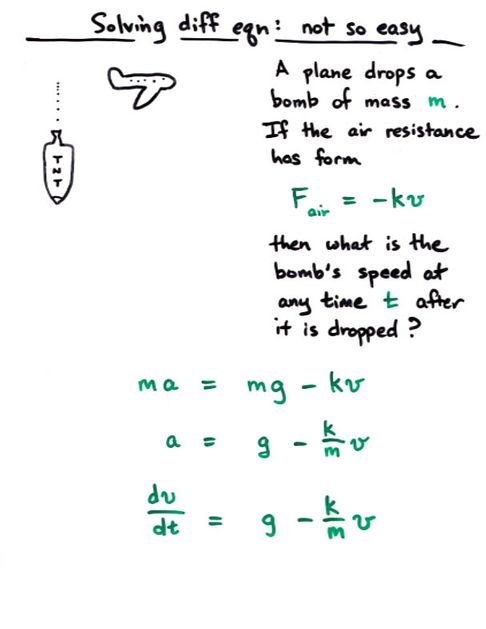 Solving diff eqn: not so easy
A plane drops a
bomb of mass m.
If the air resistance
has form
F_air = -kv
then what is the
bomb's speed at
any time t after
it is dropped?
TNT
ma = mg - kv
a = g - k/m v
dv/dt = g - k/m v